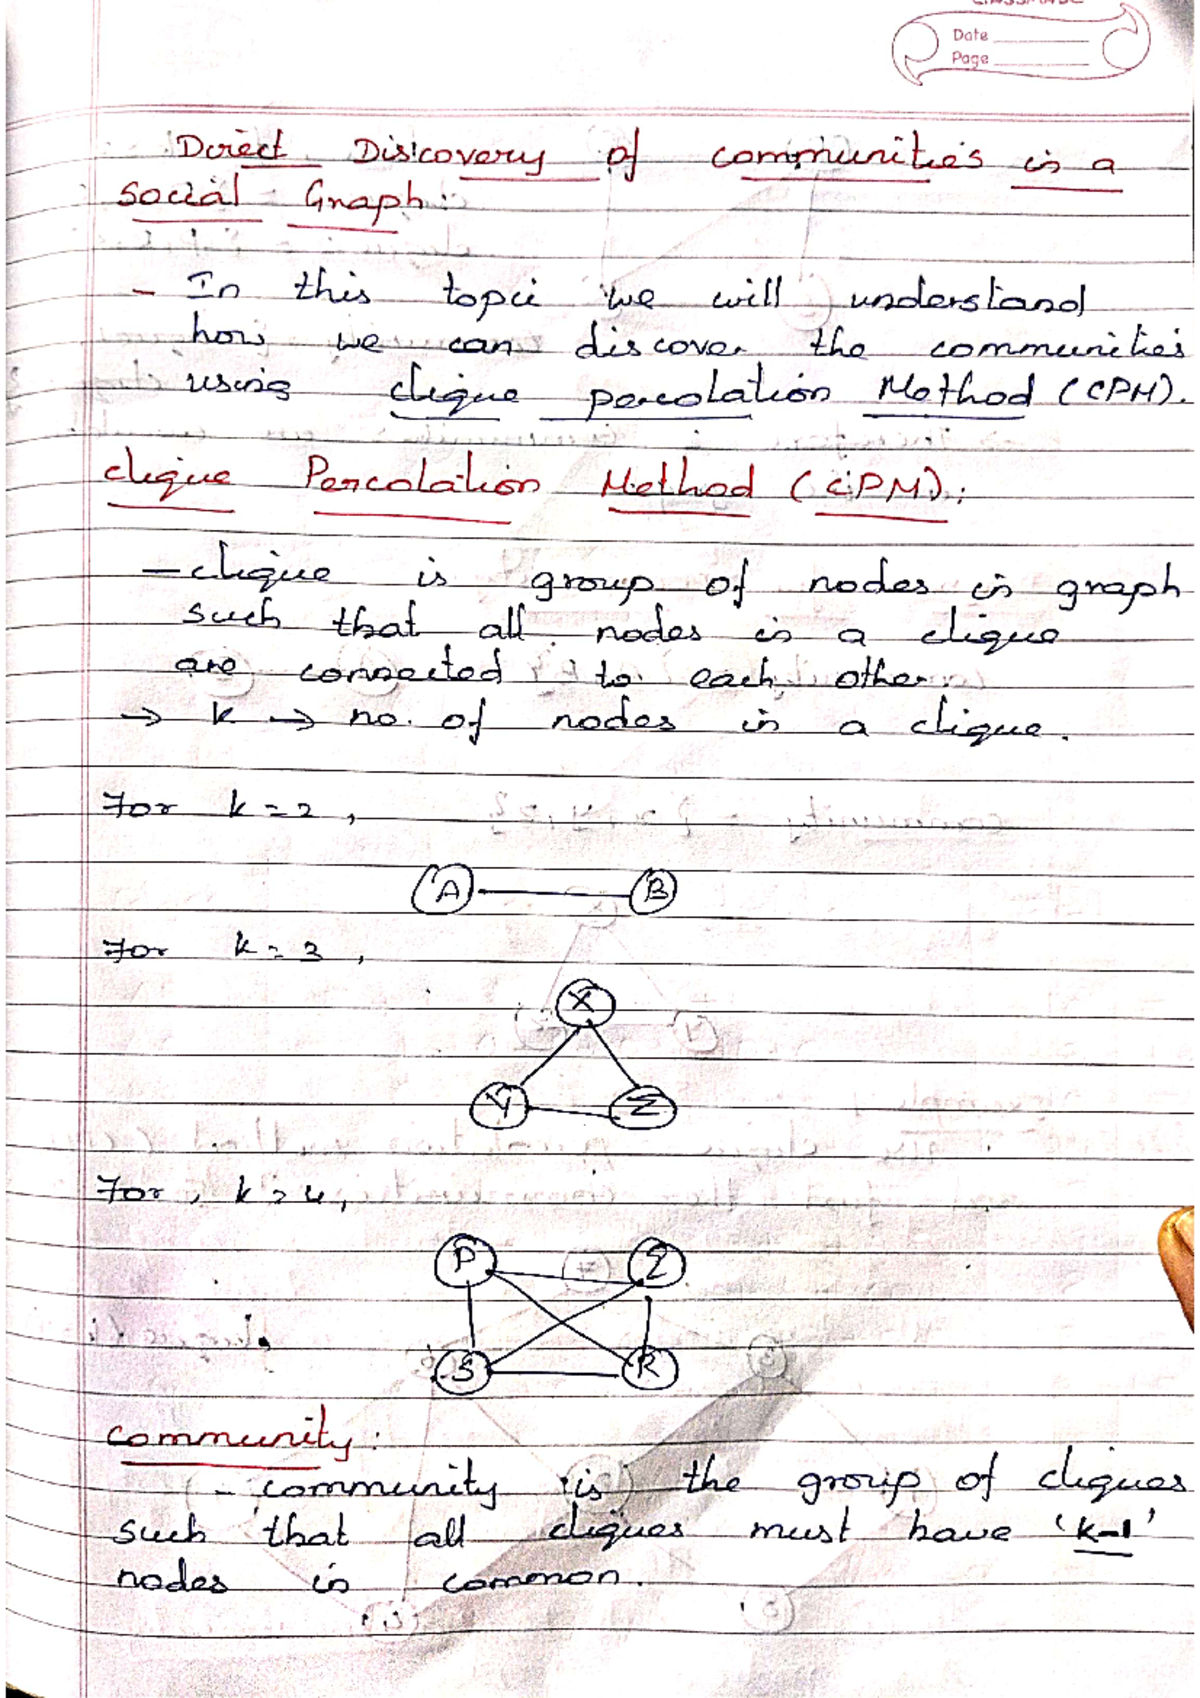 Date
Page
Direct Discovery of communities in a
social Graph:
- In this topic we will understand
how we can discover the communities
using clique percolation Method (CPM).
clique Percolation Method (CPM):
- clique is group of nodes in graph
such that all nodes in a clique
are connected to each other.
→ k → no. of nodes in a clique.
For k=2,
A B
For k=3,
X
Y Z
For, k=4,
P Q
S R
community:
- community is the group of cliques
such that all cliques must have 'k-1'
nodes in common.